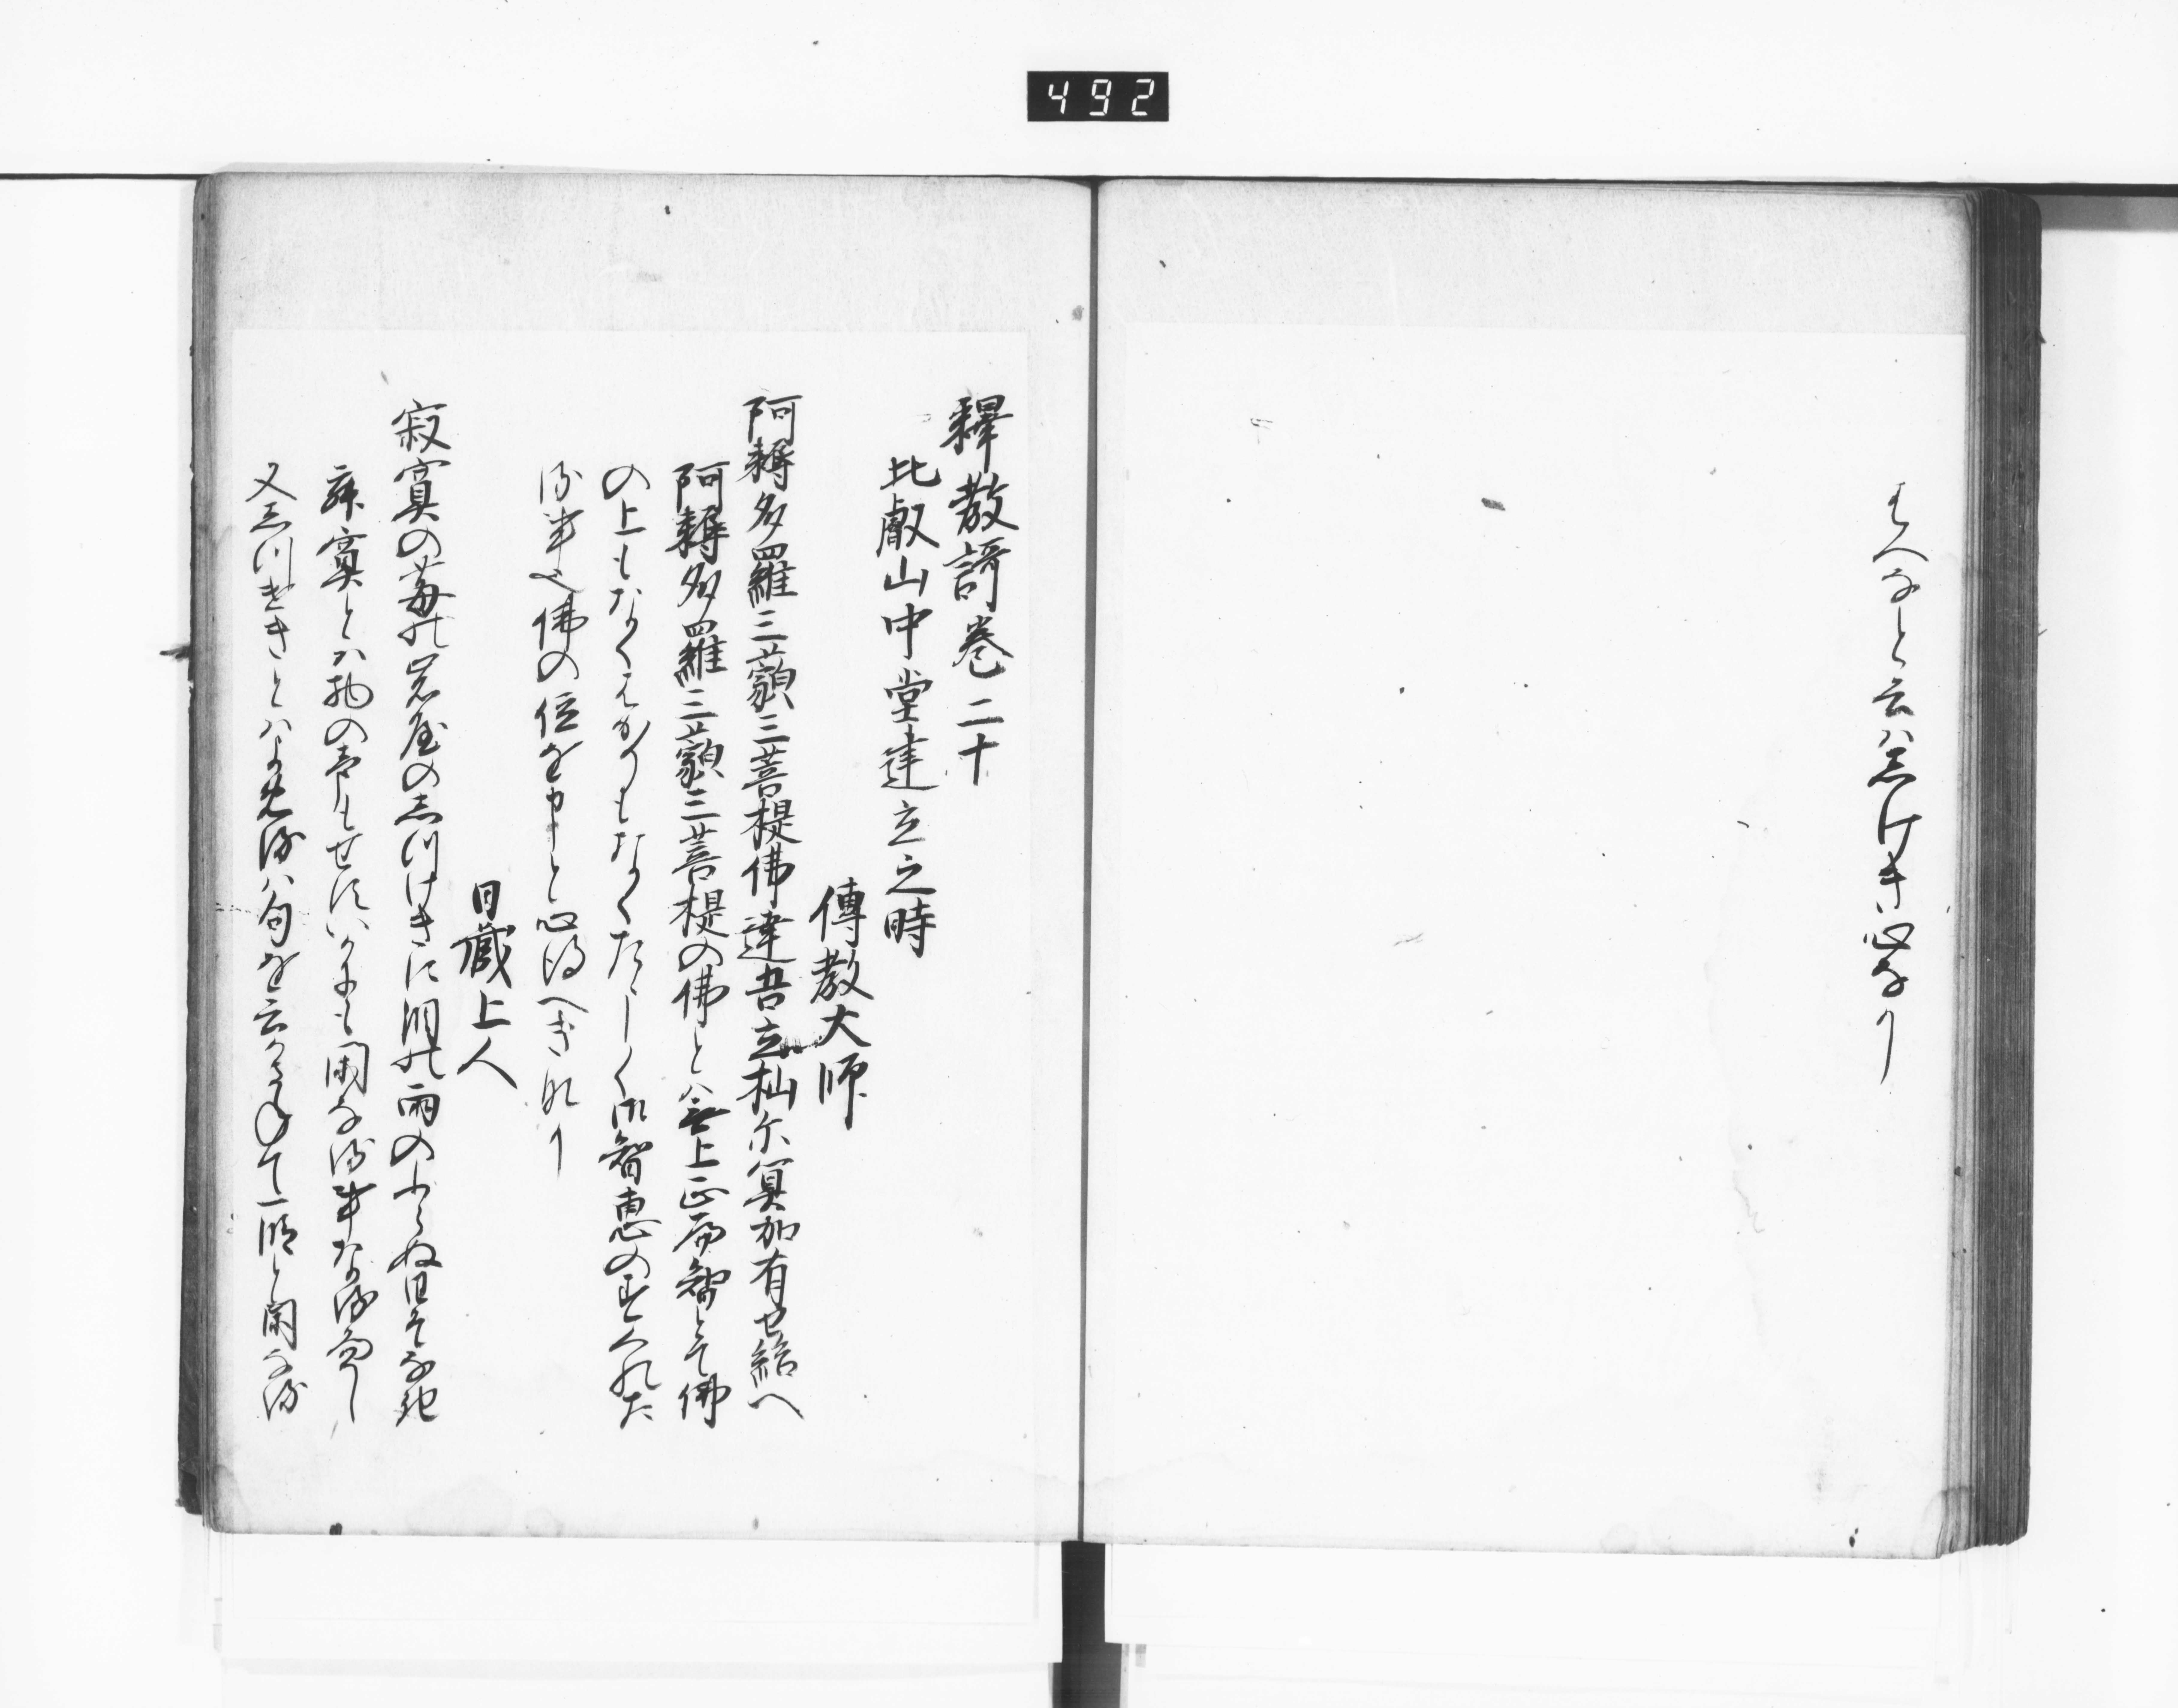 492
そへなと云ハしけき心なり
釋教謌巻二十
比叡山中堂建立之時
傳教大師
阿耨多羅三藐三菩提佛達吾立杣尓冥加有世給へ
阿耨多羅三藐三菩提の佛とハ無上正扁智とて佛
の上もなくえかうもなくたゝしく御智恵のすくれた
る事也佛の位を申と心得へきなり
日蔵上人
寂寞の苔の岩戸のしつけきに泪の雨のふらぬ日そなき
寂寞とハ物の声もせすいかにも閑なる事なる
又しつけきとハ 句を云かさねて一段と閑なる